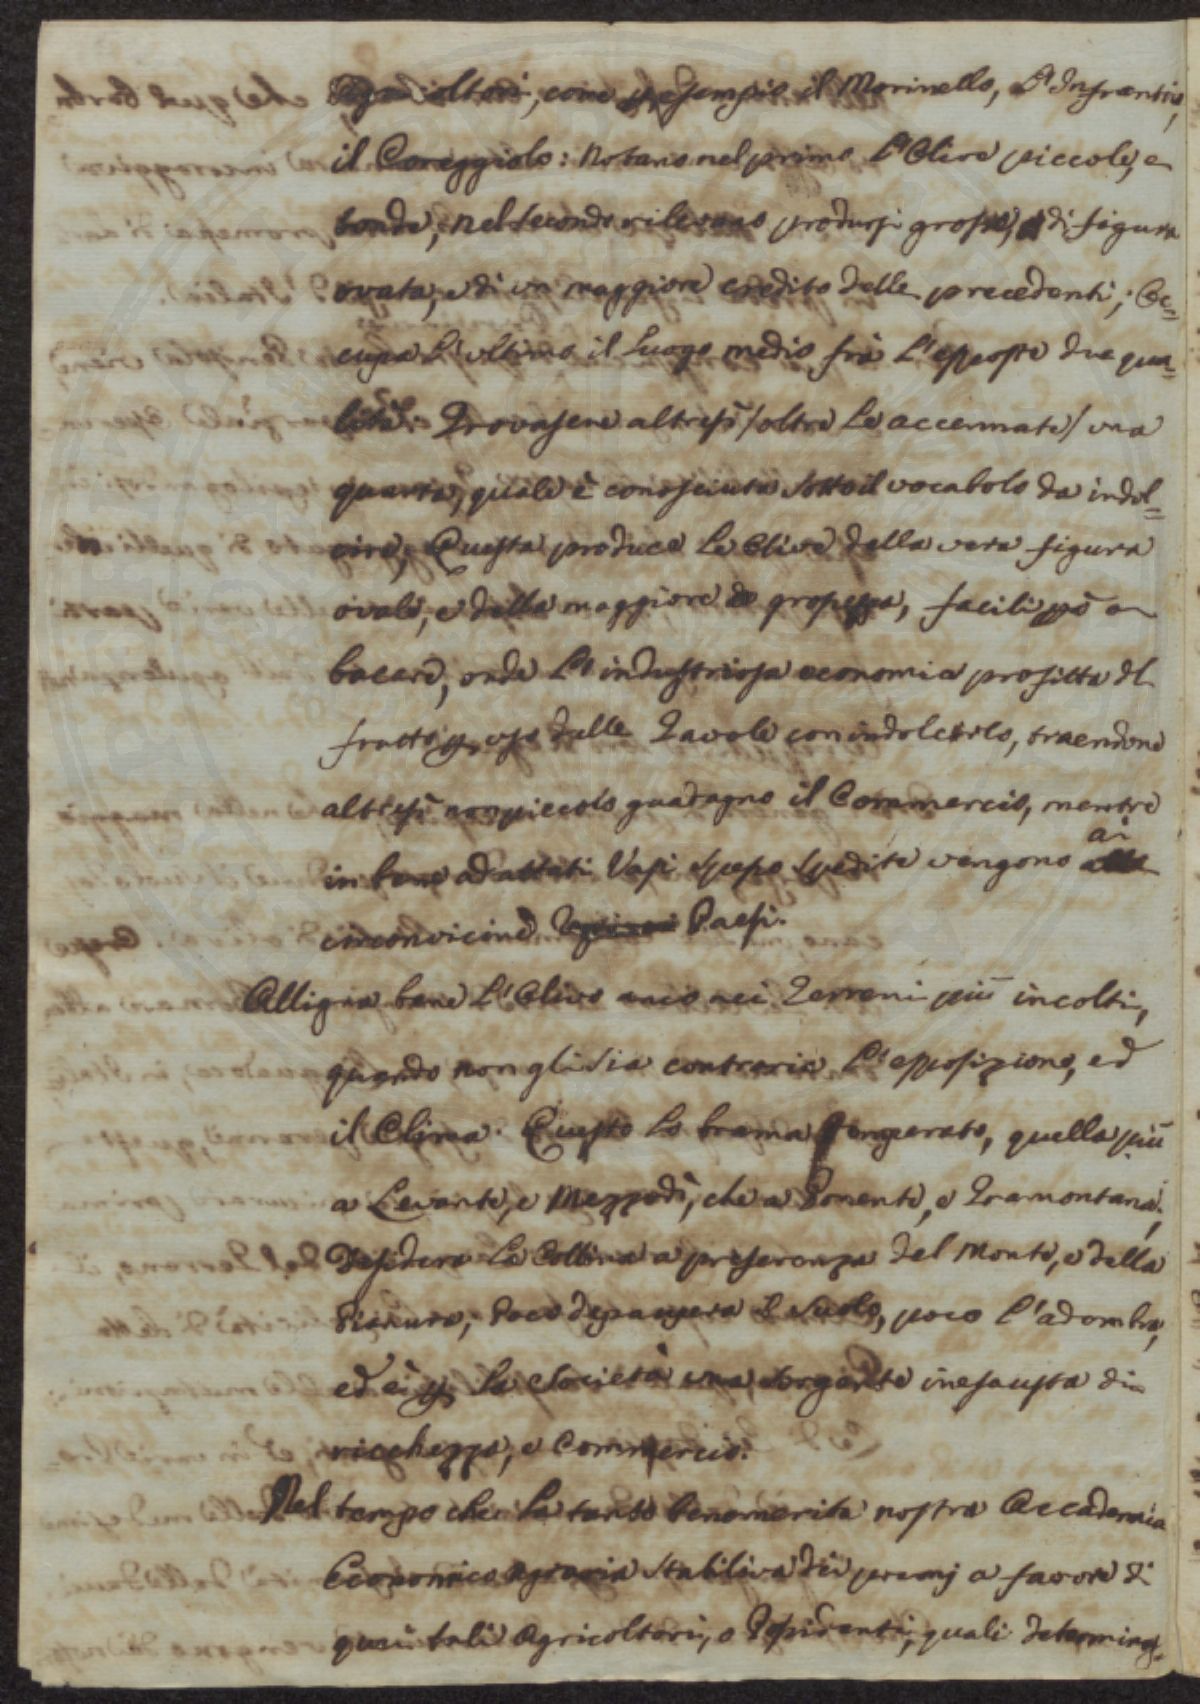 Agricoltori, come p esempio il Morinello, L'Infrantio,
il Coreggiolo: Notano nel primo L'Olive piccole, e
tonde, nel secondo rilevano prodursi grosse, di figura
ovata, e di un maggiore credito delle precedenti; Oc=
cupa L'ultimo il Luogo medio frà L'esposte due qua=
lità. Trovasene altresì /oltre le accennate/ una
quarta, quale è conosciuta sotto il vocabolo da indol=
cire, Questa produce le Olive della vera figura
ovale, e della maggiore grossezza, facili a
bacare, onde L'industriosa economia profitta del
frutto p uso delle Tavole con indolcirlo, traendone
altresì non piccolo guadagno il Commercio, mentre
in bene adattati Vasi spesso spedite vengono ai
circonvicine Paesi.
Alligna bene L'Olivo anco nei Terreni più incolti,
quando non gli sia contraria L'esposizione, ed
il Clima. Questo lo brama temperato, quella più
a Levante, e Mezzodì, che a Ponente, e Tramontana;
Desidera La Collina a preferenza del Monte, e della
Pianura, Poco depaupera il Suolo, poco l'adombra,
ed è p la Società una Sorgente inesausta di
ricchezza, e Commercio.
Nel tempo che La tanto benemerita nostra Accademia
Economico Agraria stabiliva dei premj a favore di
quei tali Agricoltori, o Possidenti, quali determina=